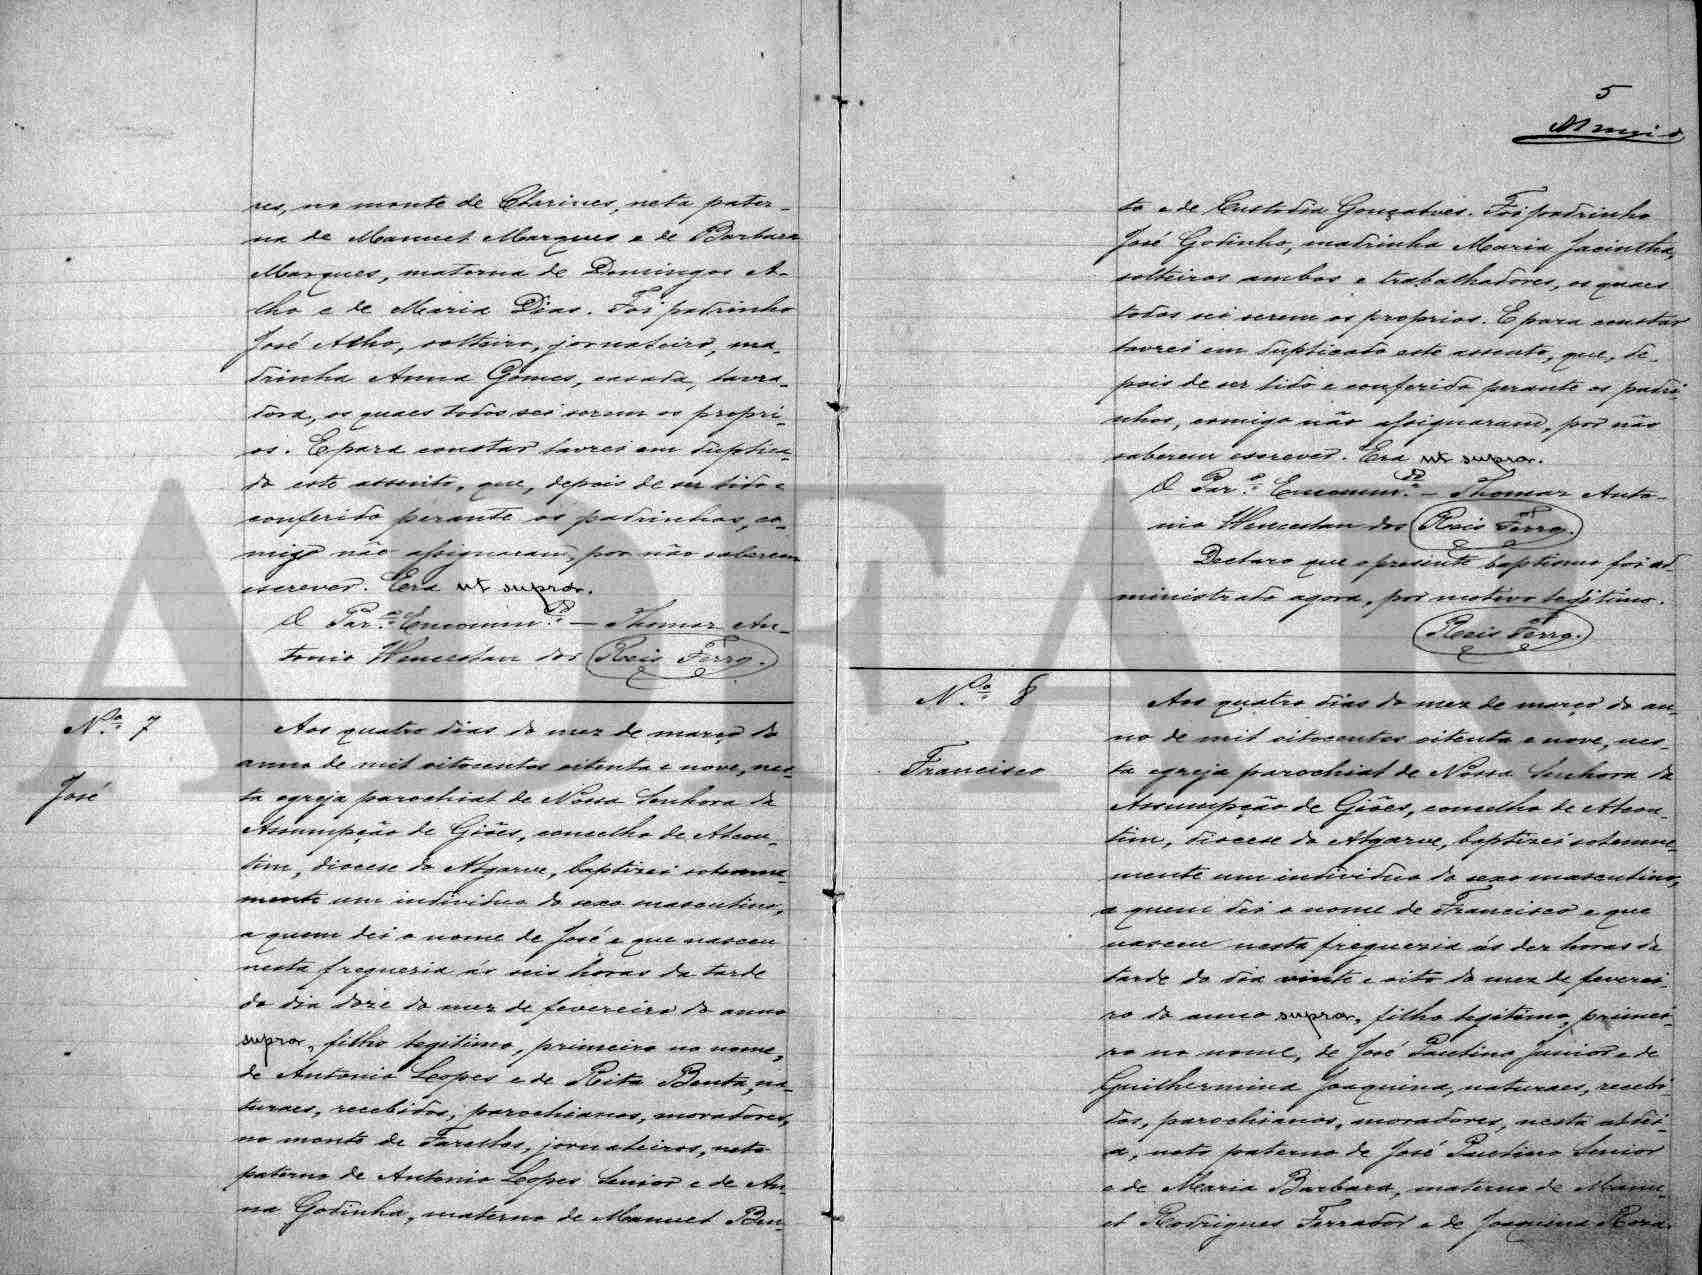 res, no monte de Clarines, neta pater-
na de Manuel Marques e de Barbara
Marques, materna de Domingos A-
lho e de Maria Dias. Foi padrinho
José Alho, solteiro, jornaleiro, ma-
drinha Anna Gomes, casada, lavra-
dora, os quaes todos sei serem os propri-
os. E para constar lavrei em duplica-
do este assento, que, depois de ser lido e
conferido perante os padrinhos, co-
migo não assignaram, por não saberem
escrever. Era ut supra.
O Par.º Encomm.do – Thomaz An-
tonio Wenceslau dos Reis Ferro.
N.º 7
José
Aos quatro dias do mez de março do
anno de mil oitocentos oitenta e nove, nes-
ta egreja parochial de Nossa Senhora da
Assumpção de Giões, concelho de Alcou-
tim, diocese do Algarve, baptizei solemne-
mente um individuo do sexo masculino,
a quem dei o nome de José e que nasceu
nesta freguezia ás seis horas da tarde
do dia doze do mez de fevereiro do anno
supra, filho legitimo, primeiro no nome,
de Antonio Lopes e de Rita Benta, na-
turaes, recebidos, parochianos, moradores,
no monte de Farelhos, jornaleiros, neto
paterno de Antonio Lopes Senior e de An-
na Godinha, materno de Manuel Ben-
5
to e de Custodia Gonçalves. Foi padrinho
José Godinho, madrinha Maria Jacintha,
solteiros ambos e trabalhadores, os quaes
todos sei serem os proprios. E para constar
lavrei em duplicado este assento, que, de-
pois de ser lido e conferido perante os padri-
nhos, comigo não assignaram, por não
saberem escrever. Era ut supra.
O Par.º Encomm.do – Thomaz Anto-
nio Wenceslau dos Reis Ferro.
Declaro que o presente baptismo foi ad-
ministrado agora, por motivo legitimo.
Reis Ferro.
N.º 8
Francisco
Aos quatro dias do mez de março do an-
no de mil oitocentos oitenta e nove, nes-
ta egreja parochial de Nossa Senhora da
Assumpção de Giões, concelho de Alcou-
tim, diocese do Algarve, baptizei solemne-
mente um individuo do sexo masculino,
a quem dei o nome de Francisco e que
nasceu nesta freguezia ás dez horas da
tarde do dia vinte e oito do mez de feverei-
ro do anno supra, filho legitimo, primei-
ro no nome, de José Paulino Junior e de
Guilhermina Joaquina, naturaes, recebi-
dos, parochianos, moradores, nesta aldei-
a, neto paterno de José Paulino Senior
e de Maria Barbara, materno de Manu-
el Rodrigues Ferrador e de Joaquina Roza.
ADFAR